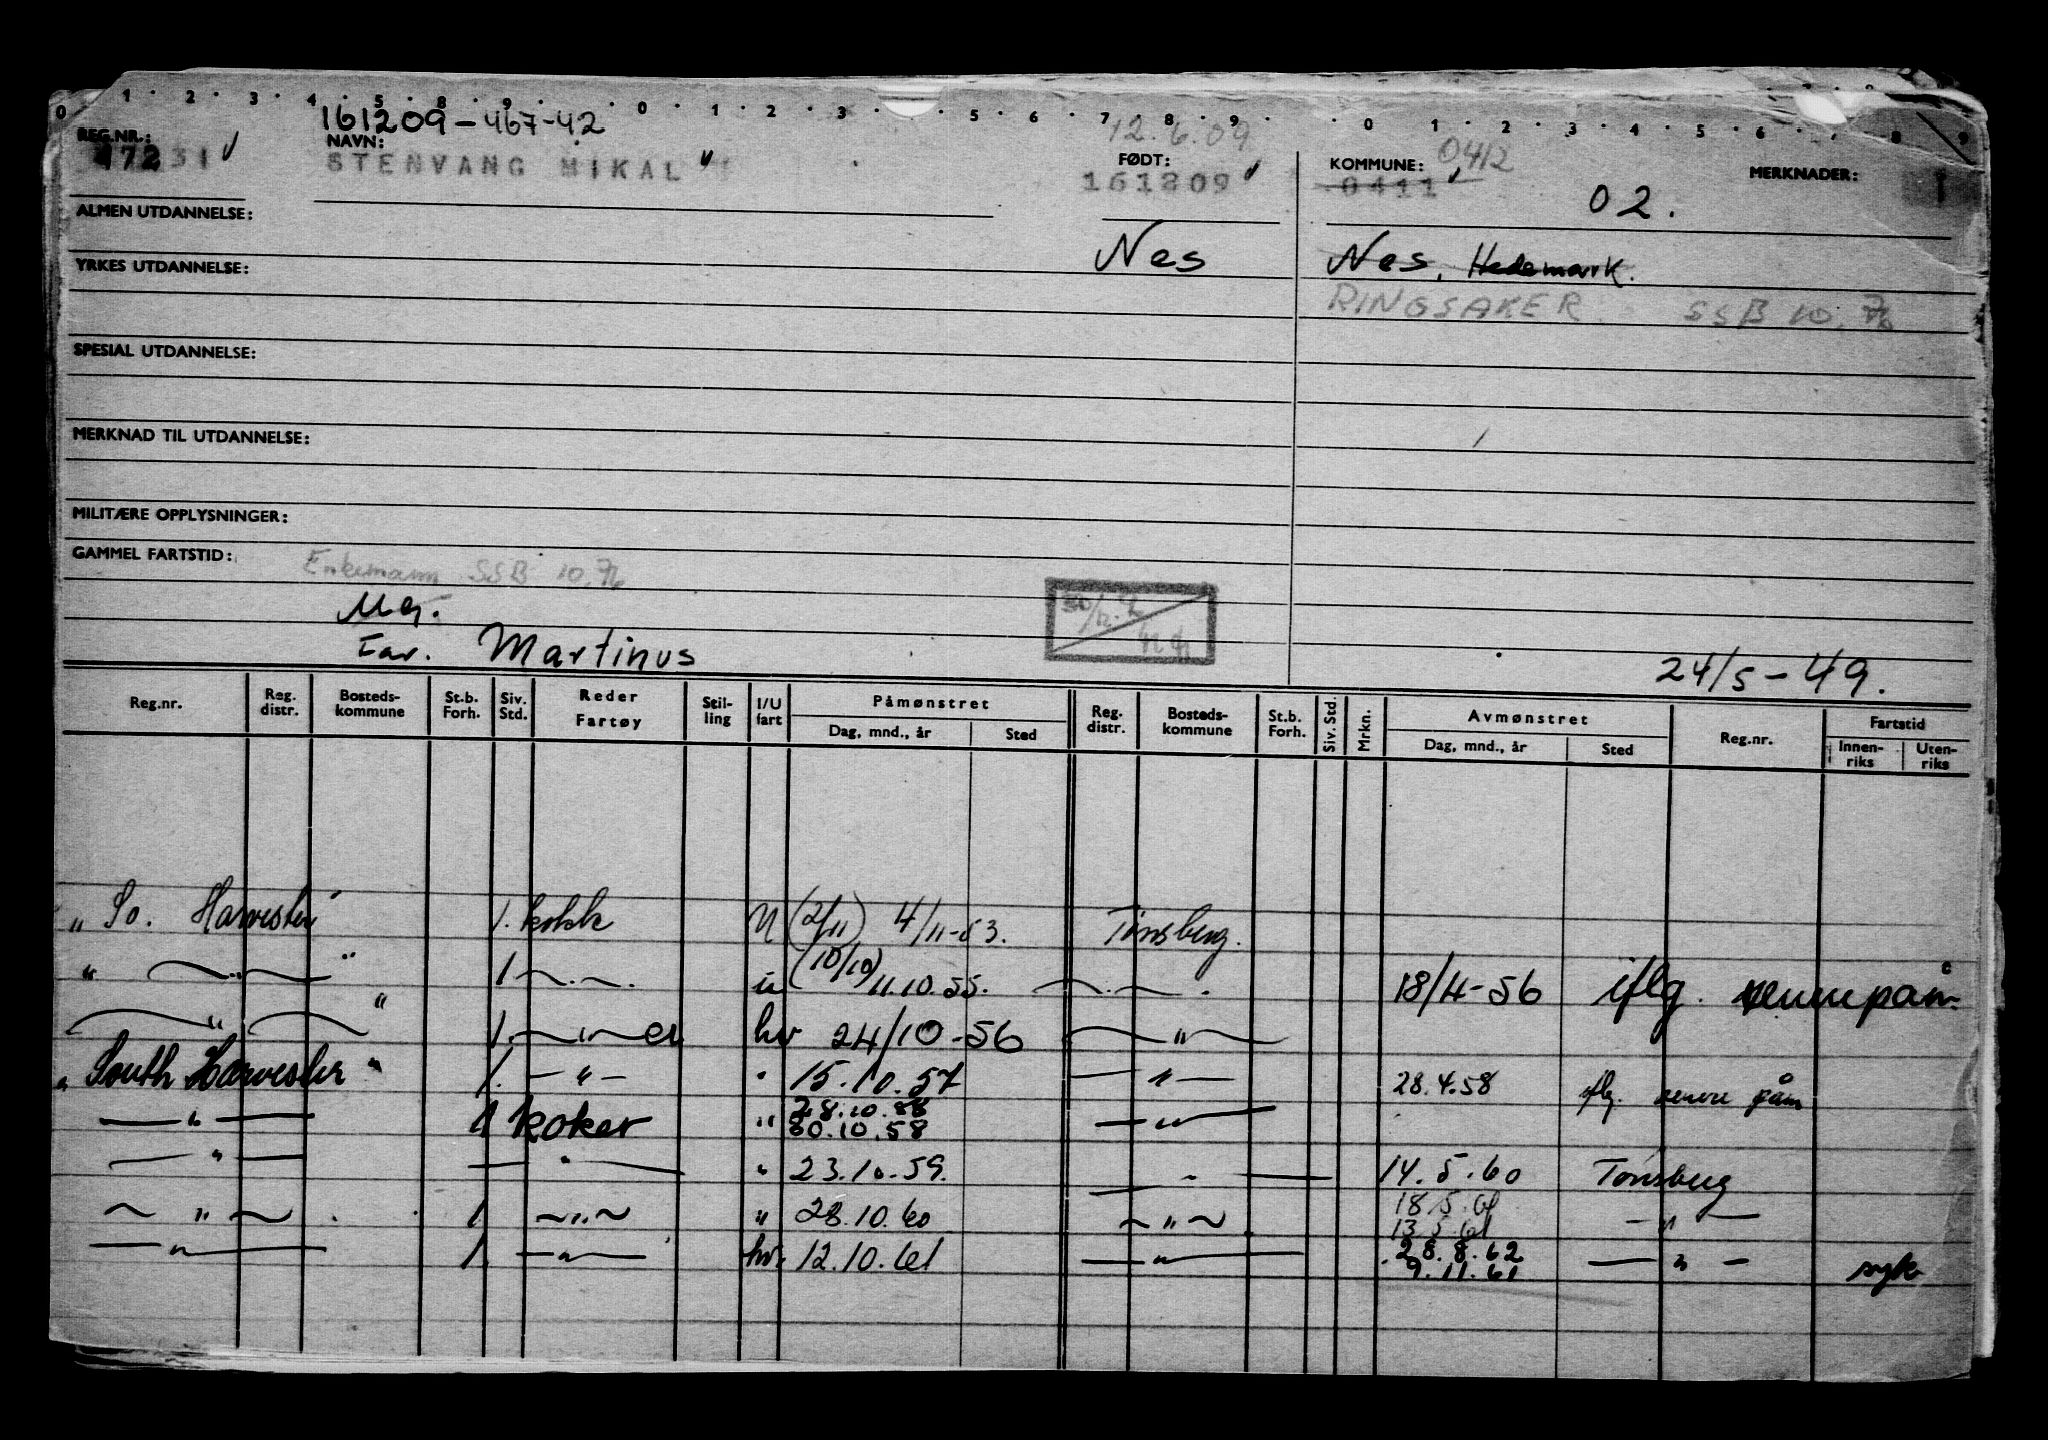 0 1 2 3 4 5 8 9 0 1 2 3 5 6 7 8 9 0 1 2 3 4 5 6 7 8 9
161209-467-42 12.6.09
REG.NR.: NAVN: FØDT: KOMMUNE: 0412 MERKNADER:
47231 STENVANG MIKAL 161209 0411 02. 1
ALMEN UTDANNELSE:
Nes Nes, Hedemark.
YRKES UTDANNELSE:
RINGSAKER SSB 10.76
SPESIAL UTDANNELSE:
MERKNAD TIL UTDANNELSE:
MILITÆRE OPPLYSNINGER:
GAMMEL FARTSTID: Enkemann SSB 10.76
Far. Martinus 24/5-49.
Reg.nr. Reg. distr. Bosteds-kommune St.b. Forh. Siv. Std. Reder Fartøy Stil-ling I/U fart Påmønstret Dag, mnd., år Sted Reg. distr. Bosteds-kommune St.b. Forh. Siv. Std. Mrkn. Avmønstret Dag, mnd., år Sted Reg.nr. Fartstid Innen-riks Uten-riks
„ So. Harvester" 1. kokk U (2/11) 4/11-53. Tønsberg.
" — " — " 1 —.—. u (10/10) 11.10.55. —.—. 18/4-56 iflg. senere påm.
— " — " 1. —"— hv 24/10-56 — " —
" South Harvester " 1. — " — " 15.10.57 — " — 28.4.58 iflg. senere påm
— " — 1 koker " 28.10.58 — " —
30.10.58
— " — — " — " 23.10.59. — " — 14.5.60 Tønsberg
— " — 1 — " — " 28.10.60 — " — 18.5.61 — " —
13.5.61
— " — 1. — " — hv. 12.10.61 — " — 28.8.62 — " — syk
9.11.61